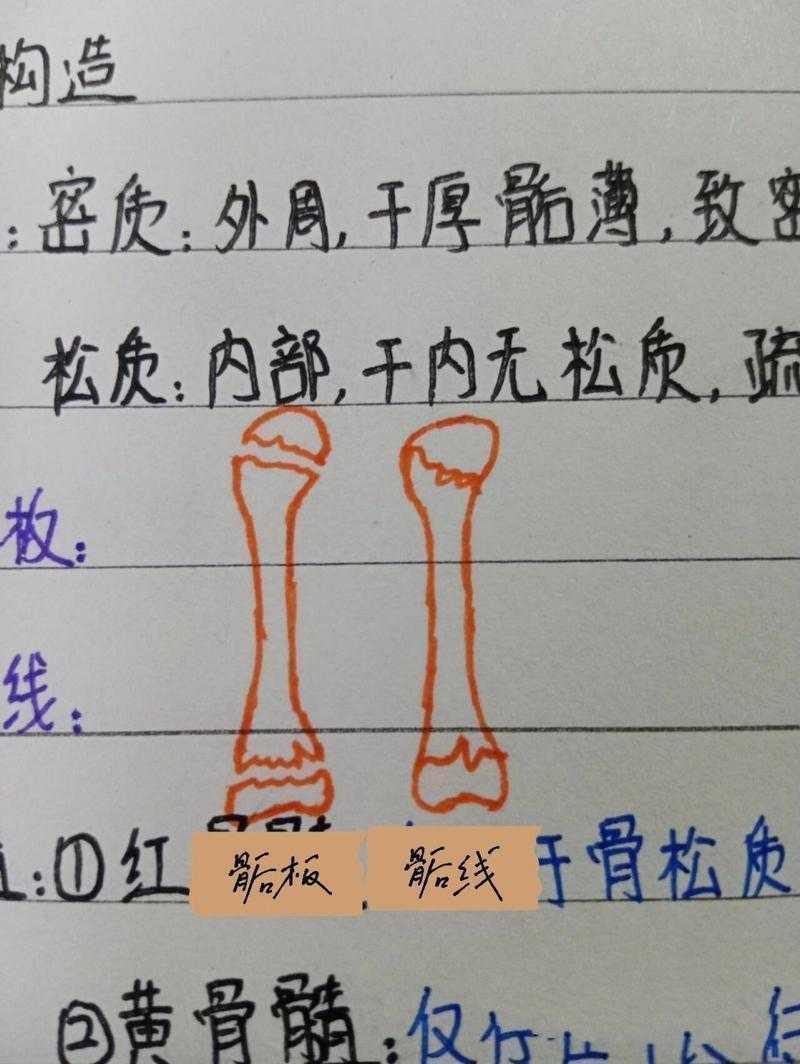 构造
：密质：外周，干厚骺薄，致密
松质：内部，干内无松质，疏
板：
线：
：①红
骺板
骺线
于骨松质
②黄骨髓：仅